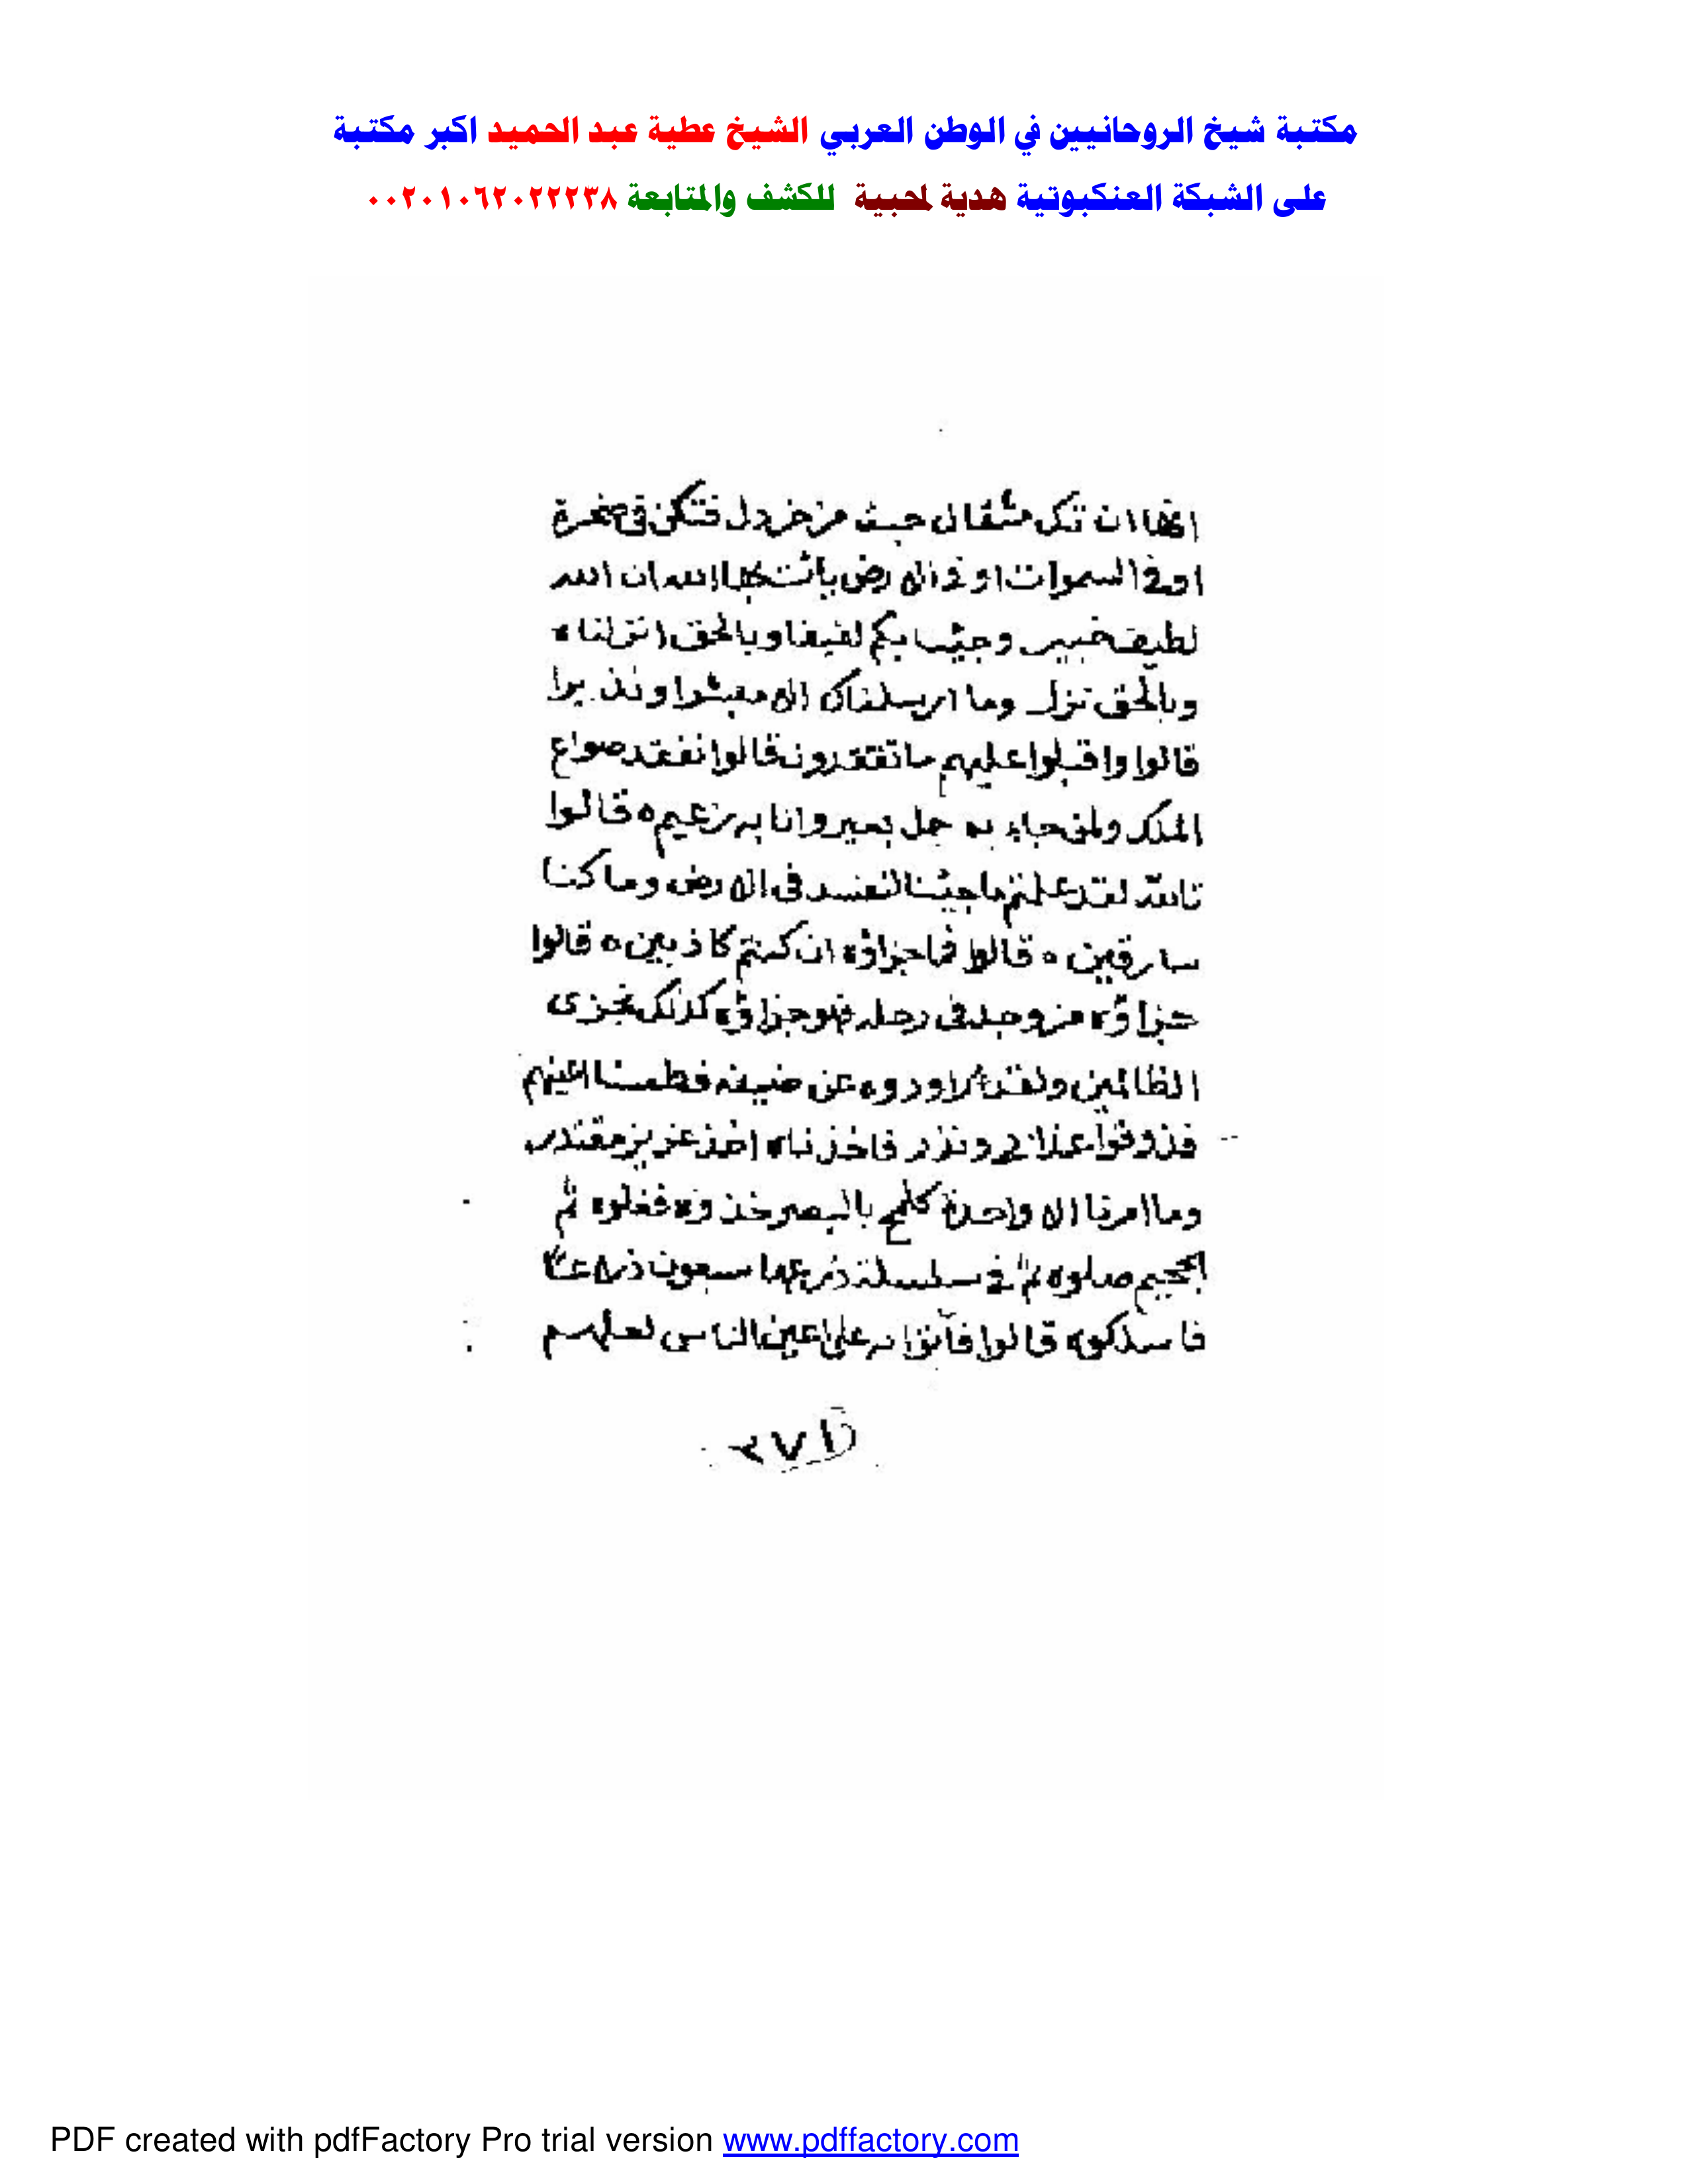 مكتبة شيخ الروحانيين في الوطن العربي الشيخ عطية عبد الحميد اكبر مكتبة
على الشبكة العنكبوتية هدية لمحبية للكشف والمتابعة ٠٠٢٠١٠٦٢٠٢٢٢٣٨
انها ان تك مثقال حبة من خردل فتكن في صخرة
او في السموات او في الارض يات بها الله ان الله
لطيف خبير وجئنا بكم لفيفا وبالحق انزلناه
وبالحق نزل وما ارسلناك الا مبشرا ونذيرا
قالوا واقبلوا عليهم ماتفقدون قالوا نفقد صواع
الملك ولمن جاء به حمل بعير وانا به زعيم ه قالوا
تالله لقد علمتم ماجئنا لنفسد في الارض وما كنا
سارقين ه قالوا فما جزاؤه ان كنتم كاذبين ه قالوا
جزاؤه من وجد في رحله فهو جزاؤه كذلك نجزى
الظالمين ولقد راودوه عن ضيفه فطمسنا اعينهم
فذوقوا عذابي ونذر فاخذناه اخذ عزيز مقتدر
وما امرنا الا واحدة كلمح بالبصر خذوه فغلوه ثم
الجحيم صلوه ثم في سلسلة ذرعها سبعون ذراعا
فاسلكوه قالوا فأتوا به على اعين الناس لعلهم
PDF created with pdfFactory Pro trial version www.pdffactory.com